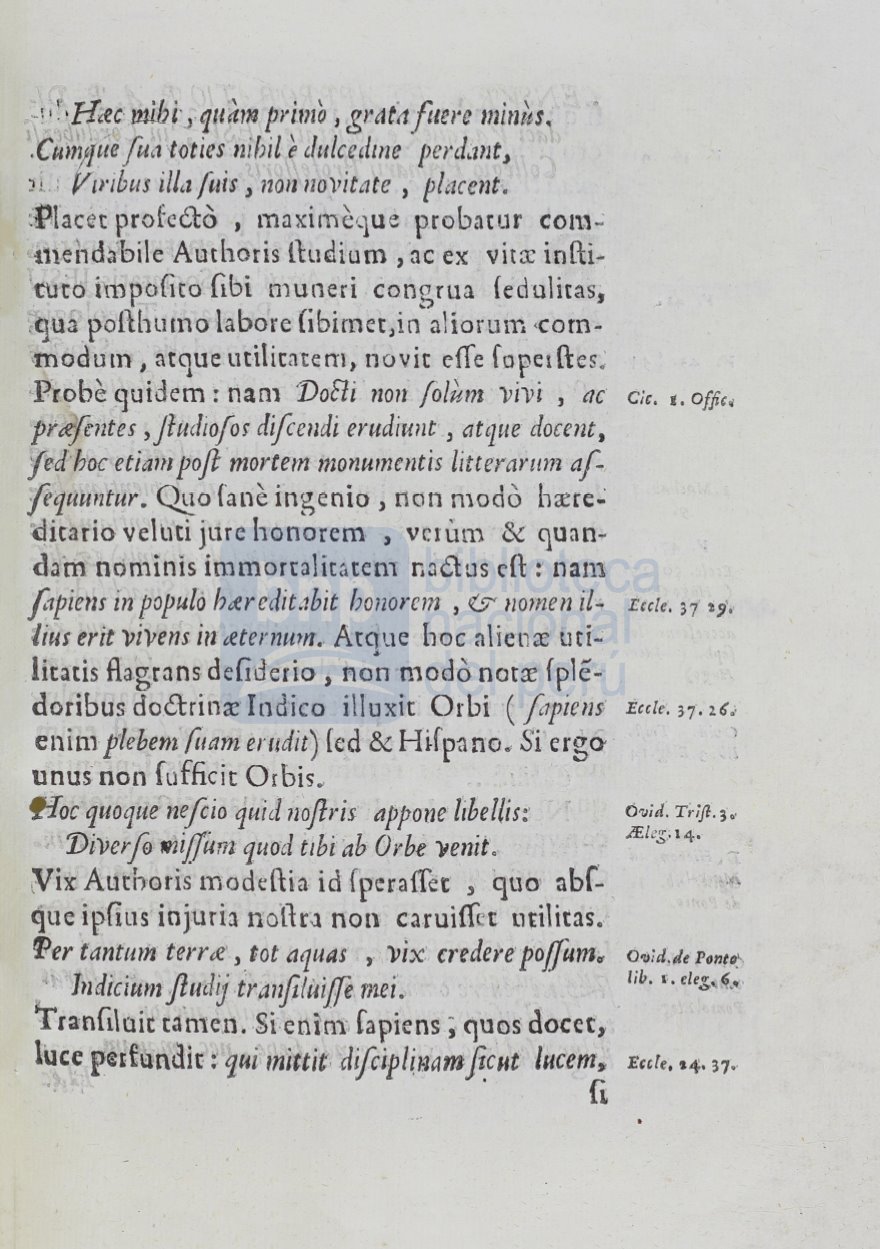 Hæc mihi, quàm primò, grata fuere minùs.
Cumque ſua toties nihil è dulcedine perdant,
Viribus illa ſuis, non novitate, placent.
Placet profectò, maximèque probatur com-
mendabile Authoris ſtudium, ac ex vitæ inſti-
tuto impoſito ſibi muneri congrua ſedulitas,
qua poſthumo labore ſibimet, in aliorum com-
modum, atque utilitatem, novit eſſe ſuperſtes.
Probè quidem: nam Docti non ſolùm vivi, ac
Cic. 1. Offic.
præſentes, ſtudioſos diſcendi erudiunt, atque docent,
ſed hoc etiam poſt mortem monumentis litterarum aſ-
ſequuntur. Quo ſanè ingenio, non modò hære-
ditario veluti jure honorem, verùm & quan-
dam nominis immortalitatem nactus eſt: nam
ſapiens in populo hæreditabit honorem, & nomen il-
Eccle. 37 29.
lius erit vivens in æternum. Atque hoc alienæ uti-
litatis flagrans deſiderio, non modò notæ ſplẽ-
doribus doctrinæ Indico illuxit Orbi (ſapiens
Eccle. 37. 26.
enim plebem ſuam erudit) ſed & Hiſpano. Si ergo
unus non ſufficit Orbis.
Hoc quoque neſcio quid noſtris appone libellis:
Ovid. Triſt. 3.
Æleg. 14.
Diverſo miſſum quod tibi ab Orbe venit.
Vix Authoris modeſtia id ſperaſſet, quo abſ-
que ipſius injuria noſtra non caruiſſet utilitas.
Per tantum terræ, tot aquas, vix credere poſſum.
Ovid. de Ponto
lib. 1. eleg. 6.
Indicium ſtudij tranſiluiſſe mei.
Tranſiluit tamen. Si enim ſapiens, quos docet,
luce perfundit: qui mittit diſciplinam ſicut lucem,
Eccle. 24. 37.
ſi
biblioteca
nacional
del perú